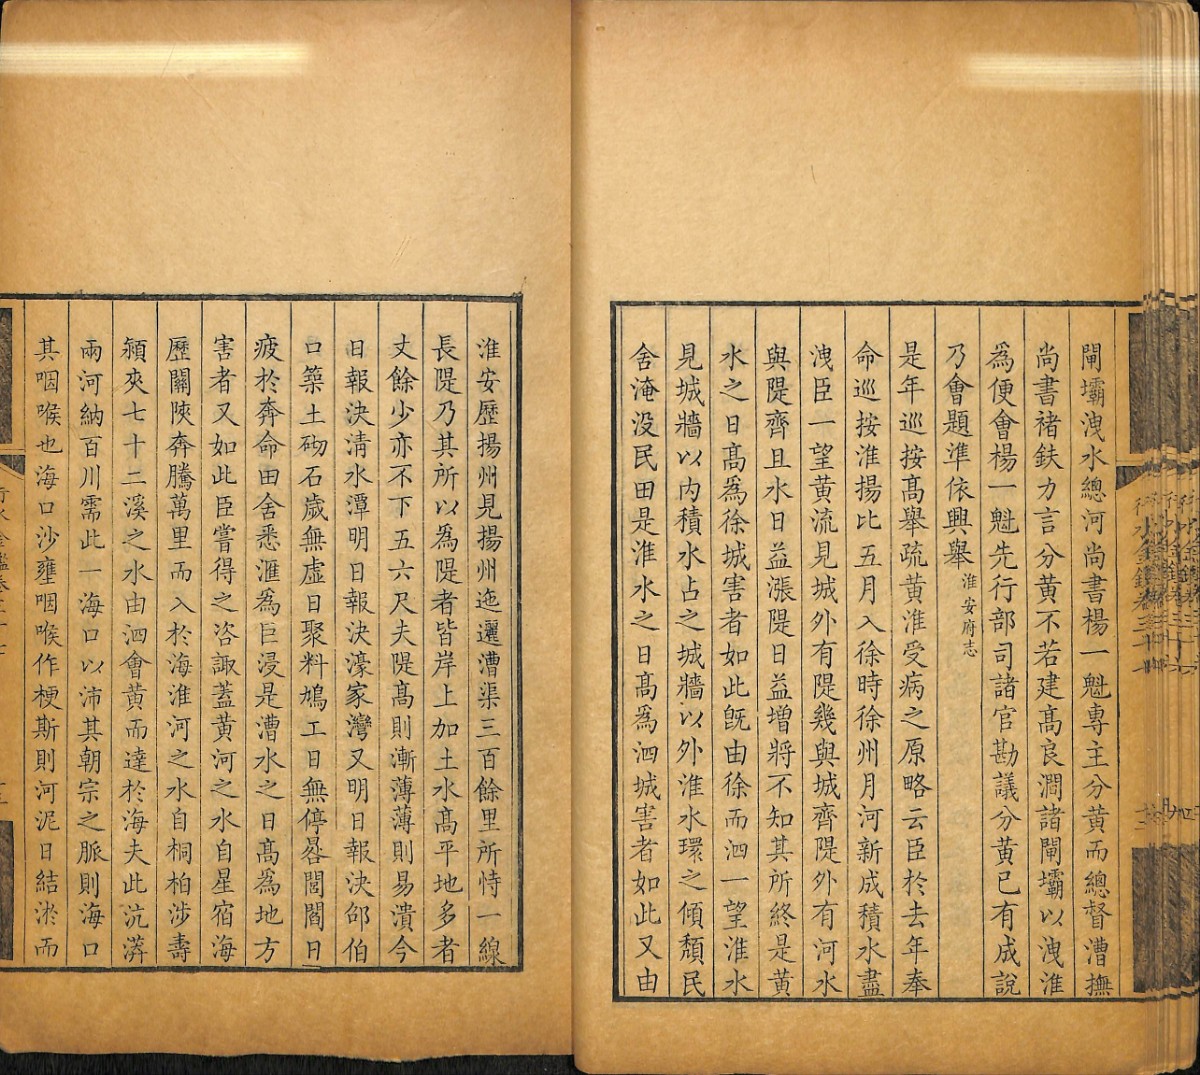 閘壩洩水總河尚書楊一魁專主分黃而總督漕撫
尚書褚鈇力言分黃不若建高良澗諸閘壩以洩淮
為便會楊一魁先行部司諸官勘議分黃已有成說
乃會題準依興舉淮安府志
是年巡按高舉疏黃淮受病之原略云臣於去年奉
命巡按淮揚比五月入徐時徐州月河新成積水盡
洩臣一望黃流見城外有隄幾與城齊隄外有河水
與隄齊且水日益漲隄日益增將不知其所終是黃
水之日高為徐城害者如此旣由徐而泗一望淮水
見城牆以內積水占之城牆以外淮水環之傾頹民
舍淹没民田是淮水之日高為泗城害者如此又由
淮安歷揚州見揚州迤邐漕渠三百餘里所恃一線
長隄乃其所以為隄者皆岸上加土水高平地多者
丈餘少亦不下五六尺夫隄高則漸薄薄則易潰今
日報決清水潭明日報決濠家灣又明日報決邵伯
口築土砌石歲無虛日聚料鳩工日無停晷閭閻日
疲於奔命田舍悉滙為巨浸是漕水之日高為地方
害者又如此臣嘗得之咨諏蓋黃河之水自星宿海
歷關陝奔騰萬里而入於海淮河之水自桐柏涉壽
潁夾七十二溪之水由泗會黃而達於海夫此沆漭
兩河納百川需此一海口以沛其朝宗之脈則海口
其咽喉也海口沙壅咽喉作梗斯則河泥日結淤而